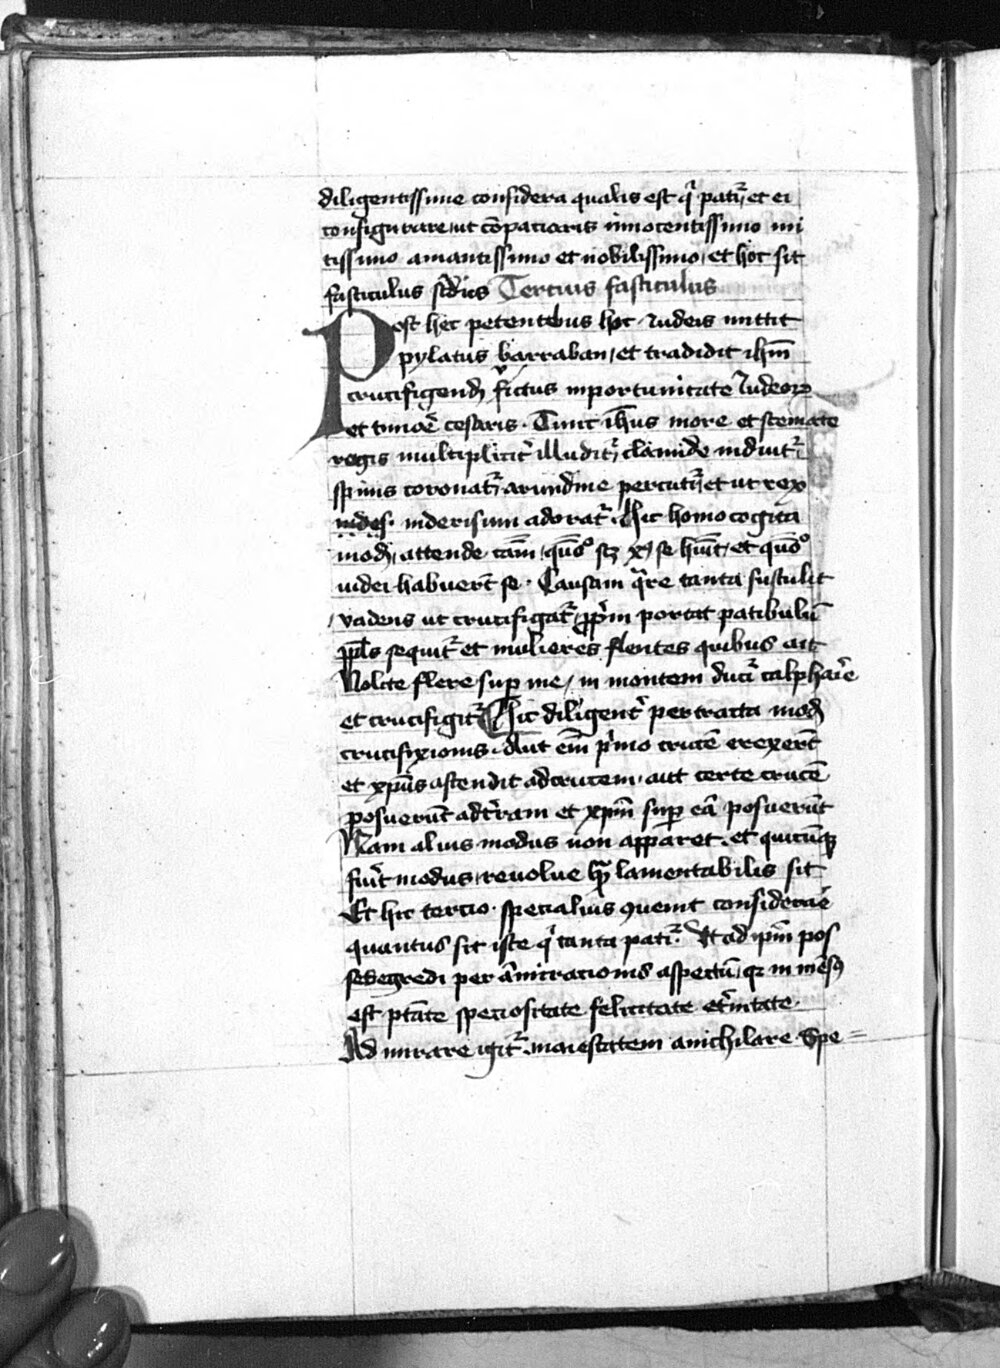 diligentissime considera qualis est q̇ patit᷑ et ei
configurare ut cōpaciaris innocentissimo mi
tissimo amantissimo et nobilissimo / et hoc sit
fasciculus scd̄us Tercius fasciculus
Post hec petentibus hoc Iudeis mittit
pylatus barraban / et tradidit ihm̄
crucifigend̄ victus inportunitate Iudeoꝝ
et timor̄ cesaris · Tunc ih̄us more et scemate
regis multiplicit᷑ illudit᷑ clamide induit᷑
spinis coronat᷑ arundine percutit᷑ et ut rex
iudeis inderisum adorat᷑ · Hic homo cogita
mod̄ / attende tam̄ / quō scꝫ xp̄c se hūit / et quō
iudei habuerūt se · Causam quare tanta sustulit
vadens ut crucifigat᷑ / pp̄m portat patibulū
ppl̄s sequit᷑ et mulieres flentes quibus ait
Nolite flere suꝑ me / in montem ducit᷑ calphaīe
et crucifigit᷑ Hic diligent᷑ pertracta mod̄
crucifixionis · Aut em̄ p̓mo crucē erexerūt
et xp̄us ascendit adcrucem / aut certe crucē
posuerūt adt̓ram et xpm̄ suꝑ eā posuerūt
Nam alius modus non apparet · et quicūqꝫ
fu̓it modus / reuolue qꝫ lamentabilis sit
Et hic tercio · specialius ꝯuenit considerare
quantus sit iste q̇ tanta patit᷑ · Et ad ipm̄ pos
se ingredi per am̄iracionis aspectū / qꝛ in mēsꝰ
est ptāte speciositate felicitate et̓nitate ·
Ad mirare igit᷑ maiestatem anichilare · Spe=